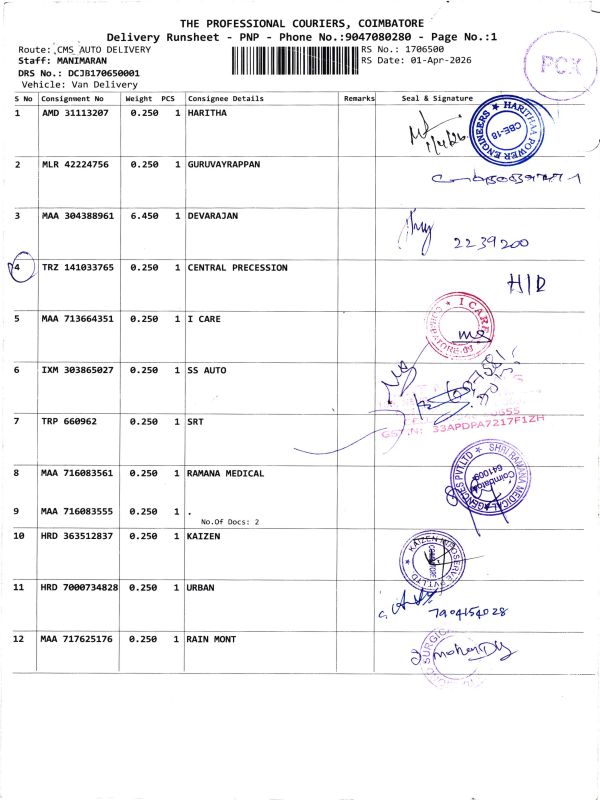 THE PROFESSIONAL COURIERS, COIMBATORE
Delivery Runsheet - PNP - Phone No.:9047080280 - Page No.:1
Route: CMS AUTO DELIVERY
RS No.: 1706500
Staff: MANIMARAN
RS Date: 01-Apr-2026
DRS No.: DCJB170650001
Vehicle: Van Delivery
PCX
S No Consignment No Weight PCS Consignee Details Remarks Seal & Signature
1 AMD 31113207 0.250 1 HARITHA
1/4/26
HARITHAA POWER ENGINEERS ★ CBE-18
2 MLR 42224756 0.250 1 GURUVAYRAPPAN
3 MAA 304388961 6.450 1 DEVARAJAN
2239200
4 TRZ 141033765 0.250 1 CENTRAL PRECESSION
H/D
5 MAA 713664351 0.250 1 I CARE
★ I CARE
6 IXM 303865027 0.250 1 SS AUTO
7 TRP 660962 0.250 1 SRT
GST.N: 33APDPA7217F1ZH
8 MAA 716083561 0.250 1 RAMANA MEDICAL
SHRI RAMANA MEDICAL AGENCIES PVT LTD ★ Coimbatore 641009
9 MAA 716083555 0.250 1 .
No.Of Docs: 2
10 HRD 363512837 0.250 1 KAIZEN
KAIZEN INFOSERVE PVT.LTD. ★
11 HRD 7000734828 0.250 1 URBAN
7904154028
12 MAA 717625176 0.250 1 RAIN MONT
SURGIC